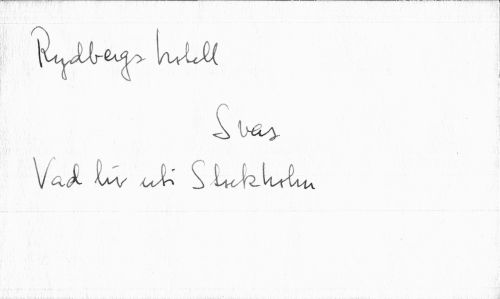 Rydbergs hotell
Svas
Vad liv uti Stockholm